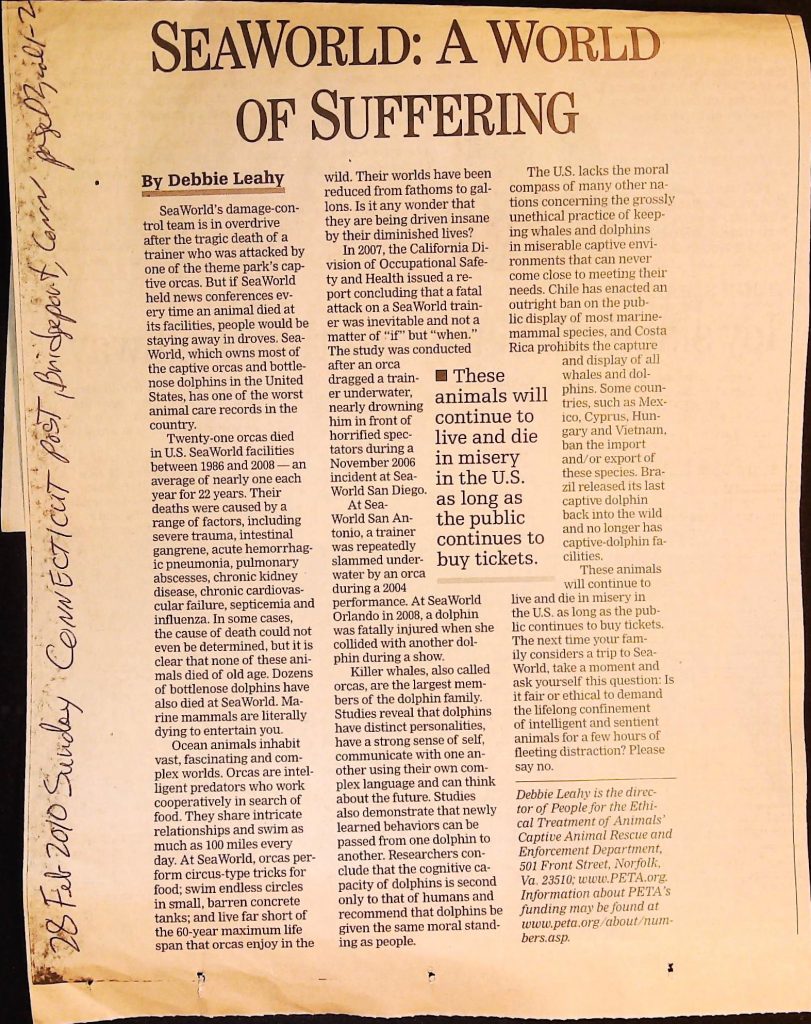 SEAWORLD: A WORLD
OF SUFFERING
By Debbie Leahy
SeaWorld's damage-con-
trol team is in overdrive
after the tragic death of a
trainer who was attacked by
one of the theme park's cap-
tive orcas. But if SeaWorld
held news conferences ev-
ery time an animal died at
its facilities, people would be
staying away in droves. Sea-
World, which owns most of
the captive orcas and bottle-
nose dolphins in the United
States, has one of the worst
animal care records in the
country.
Twenty-one orcas died
in U.S. SeaWorld facilities
between 1986 and 2008 — an
average of nearly one each
year for 22 years. Their
deaths were caused by a
range of factors, including
severe trauma, intestinal
gangrene, acute hemorrhag-
ic pneumonia, pulmonary
abscesses, chronic kidney
disease, chronic cardiovas-
cular failure, septicemia and
influenza. In some cases,
the cause of death could not
even be determined, but it is
clear that none of these ani-
mals died of old age. Dozens
of bottlenose dolphins have
also died at SeaWorld. Ma-
rine mammals are literally
dying to entertain you.
Ocean animals inhabit
vast, fascinating and com-
plex worlds. Orcas are intel-
ligent predators who work
cooperatively in search of
food. They share intricate
relationships and swim as
much as 100 miles every
day. At SeaWorld, orcas per-
form circus-type tricks for
food; swim endless circles
in small, barren concrete
tanks; and live far short of
the 60-year maximum life
span that orcas enjoy in the
wild. Their worlds have been
reduced from fathoms to gal-
lons. Is it any wonder that
they are being driven insane
by their diminished lives?
In 2007, the California Di-
vision of Occupational Safe-
ty and Health issued a re-
port concluding that a fatal
attack on a SeaWorld train-
er was inevitable and not a
matter of "if" but "when."
The study was conducted
after an orca
dragged a train-
er underwater,
nearly drowning
him in front of
horrified spec-
tators during a
November 2006
incident at Sea-
World San Diego.
At Sea-
World San An-
tonio, a trainer
was repeatedly
slammed under-
water by an orca
during a 2004
performance. At SeaWorld
Orlando in 2008, a dolphin
was fatally injured when she
collided with another dol-
phin during a show.
Killer whales, also called
orcas, are the largest mem-
bers of the dolphin family.
Studies reveal that dolphins
have distinct personalities,
have a strong sense of self,
communicate with one an-
other using their own com-
plex language and can think
about the future. Studies
also demonstrate that newly
learned behaviors can be
passed from one dolphin to
another. Researchers con-
clude that the cognitive ca-
pacity of dolphins is second
only to that of humans and
recommend that dolphins be
given the same moral stand-
ing as people.
■ These
animals will
continue to
live and die
in misery
in the U.S.
as long as
the public
continues to
buy tickets.
The U.S. lacks the moral
compass of many other na-
tions concerning the grossly
unethical practice of keep-
ing whales and dolphins
in miserable captive envi-
ronments that can never
come close to meeting their
needs. Chile has enacted an
outright ban on the pub-
lic display of most marine-
mammal species, and Costa
Rica prohibits the capture
and display of all
whales and dol-
phins. Some coun-
tries, such as Mex-
ico, Cyprus, Hun-
gary and Vietnam,
ban the import
and/or export of
these species. Bra-
zil released its last
captive dolphin
back into the wild
and no longer has
captive-dolphin fa-
cilities.
These animals
will continue to
live and die in misery in
the U.S. as long as the pub-
lic continues to buy tickets.
The next time your fam-
ily considers a trip to Sea-
World, take a moment and
ask yourself this question: Is
it fair or ethical to demand
the lifelong confinement
of intelligent and sentient
animals for a few hours of
fleeting distraction? Please
say no.
Debbie Leahy is the direc-
tor of People for the Ethi-
cal Treatment of Animals'
Captive Animal Rescue and
Enforcement Department,
501 Front Street, Norfolk,
Va. 23510; www.PETA.org.
Information about PETA's
funding may be found at
www.peta.org/about/num-
bers.asp.
28 Feb 2010 Sunday CONNECTICUT POST, Bridgeport, Conn